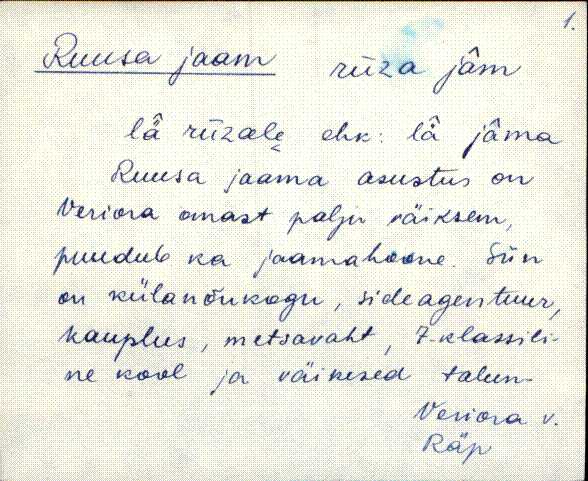 1.
Ruusa jaam rūza jâm
lǟ rūzale ehk: lǟ jâma
Ruusa jaama asustus on
Veriora omast palju väiksem,
puudub ka jaamahoone. Siin
on külanõukogu, sideagentuur,
kauplus, metsavaht, 7-klassili-
ne kool ja väikesed talun-
Veriora v.
Räp